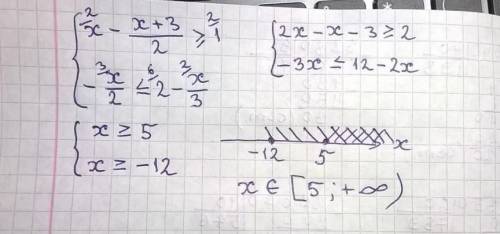 { ²⁄x - (x+3)/2 ≥ ²⁄1
{ -³⁄x/2 ≤ ⁶⁄2 - ²⁄x/3
{ 2x - x - 3 ≥ 2
{ -3x ≤ 12 - 2x
{ x ≥ 5
{ x ≥ -12
-12 5 x
x ∈ [5; +∞)